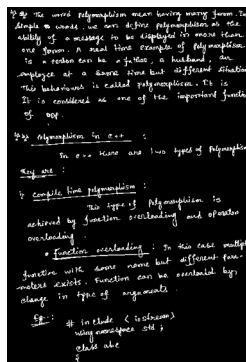 The word polymorphism mean having many form. In
simple words we can define polymorphism as the
ability of a message to be displayed in more than
one form. A real time example of polymorphism
is a person can be a father, a husband, an
employee at a same time but different situation.
This behaviours is called polymorphism. It is
It is considered as one of the important function
of oop.
Polymorphism in c++ :
In c++ there are two types of polymorphism
They are :
i) Compile time polymorphism :
This type of polymorphism is
achieved by function overloading and operator
overloading.
• function overloading : In this case multiple
function with same name but different para-
meters exists. Function can be overloaded by,
change in type of arguments.
Eg :- # include (iostream)
using namespace std ;
class abc
{